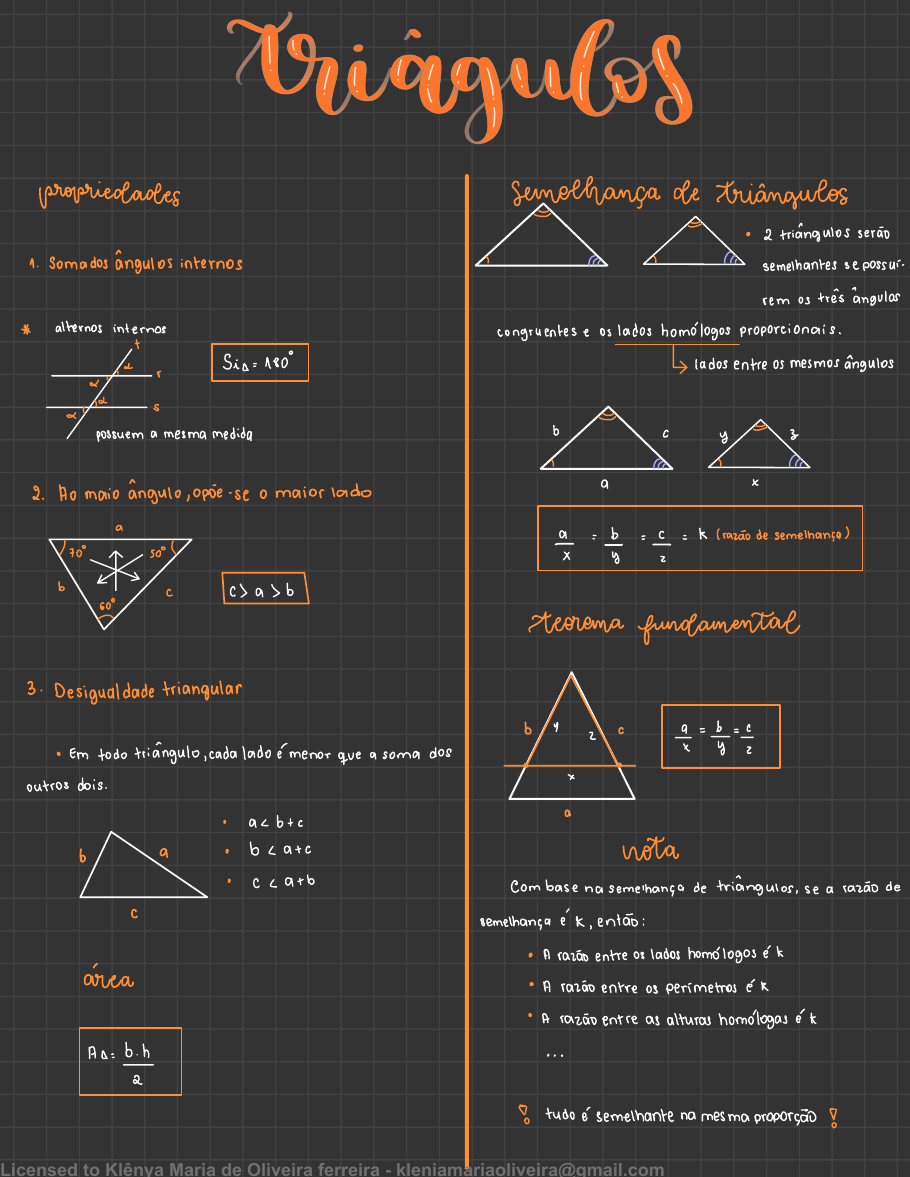 triângulos
propriedades
1. Soma dos ângulos internos
* alternos internos
t
r
s
α
α
α
α
Si△ = 180°
possuem a mesma medida
2. Ao maio ângulo, opõe-se o maior lado
a
70° 50°
b c
60°
c > a > b
3. Desigualdade triangular
• Em todo triângulo, cada lado é menor que a soma dos
outros dois.
b a
c
• a < b+c
• b < a+c
• c < a+b
área
A△ = b.h
2
Semelhança de triângulos
• 2 triângulos serão
semelhantes se possuí-
rem os três ângulos
congruentes e os lados homólogos proporcionais.
lados entre os mesmos ângulos
b c y z
a x
a/x = b/y = c/z = k (razão de semelhança)
teorema fundamental
b y z c
x
a
a/x = b/y = c/z
nota
Com base na semelhança de triângulos, se a razão de
semelhança é k, então:
• A razão entre os lados homólogos é k
• A razão entre os perímetros é k
• A razão entre as alturas homólogas é k
...
! tudo é semelhante na mesma proporção !
Licensed to Klênya Maria de Oliveira ferreira - kleniamariaoliveira@gmail.com